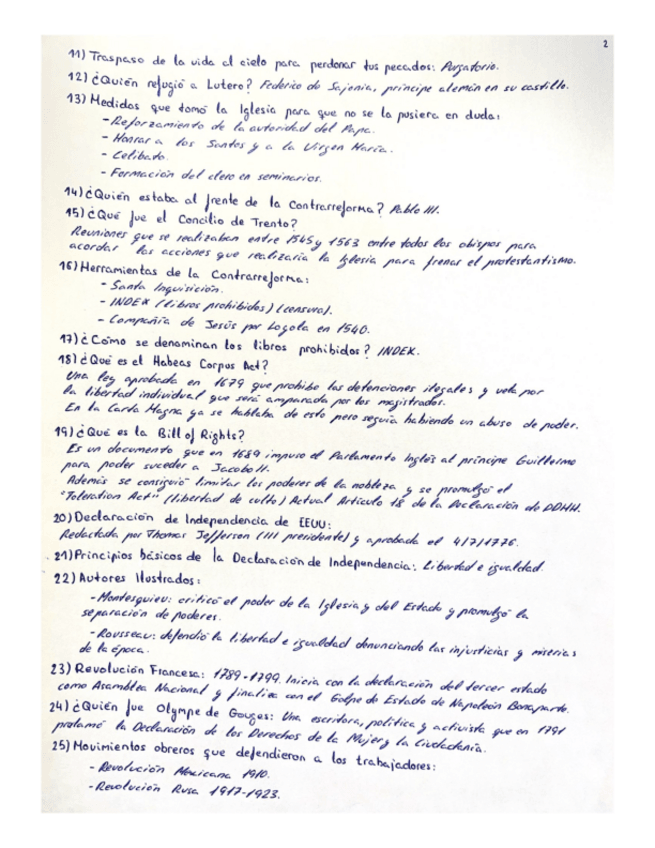 2
11) Traspaso de la vida al cielo para perdonar tus pecados: Purgatorio.
12) ¿Quién refugió a Lutero? Federico de Sajonia, príncipe alemán en su castillo.
13) Medidas que tomó la Iglesia para que no se la pusiera en duda:
- Reforzamiento de la autoridad del Papa.
- Honrar a los Santos y a la Virgen María.
- Celibato.
- Formación del clero en seminarios.
14) ¿Quién estaba al frente de la Contrarreforma? Pablo III.
15) ¿Qué fue el Concilio de Trento?
Reuniones que se realizaban entre 1545 y 1563 entre todos los obispos para
acordar las acciones que realizaría la Iglesia para frenar el protestantismo.
16) Herramientas de la Contrarreforma:
- Santa Inquisición.
- INDEX (libros prohibidos) (censura).
- Compañía de Jesús por Loyola en 1540.
17) ¿Cómo se denominan los libros prohibidos? INDEX.
18) ¿Qué es el Habeas Corpus Act?
Una ley aprobada en 1679 que prohibe las detenciones ilegales y vela por
la libertad individual que será amparada por los magistrados.
En la Carta Magna ya se hablaba de esto pero seguía habiendo un abuso de poder.
19) ¿Qué es la Bill of Rights?
Es un documento que en 1689 impuso el Parlamento Inglés al príncipe Guillermo
para poder suceder a Jacobo II.
Además se consiguió limitar los poderes de la nobleza y se promulgó el
"Toleration Act" (libertad de culto) Actual Artículo 18 de la Declaración de DDHH.
20) Declaración de Independencia de EEUU:
Redactada por Thomas Jefferson (III presidente) y aprobada el 4/7/1776.
21) Principios básicos de la Declaración de Independencia: Libertad e igualdad.
22) Autores Ilustrados:
- Montesquieu: criticó el poder de la Iglesia y del Estado y promulgó la
separación de poderes.
- Rousseau: defendió la libertad e igualdad denunciando las injusticias y miserias
de la época.
23) Revolución Francesa: 1789-1799. Inicia con la declaración del tercer estado
como Asamblea Nacional y finaliza con el Golpe de Estado de Napoleón Bonaparte.
24) ¿Quién fue Olympe de Gouges: Una escritora, política y activista que en 1791
proclamó la Declaración de los Derechos de la Mujer y la Ciudadanía.
25) Movimientos obreros que defendieron a los trabajadores:
- Revolución Mexicana 1910.
- Revolución Rusa 1917-1923.